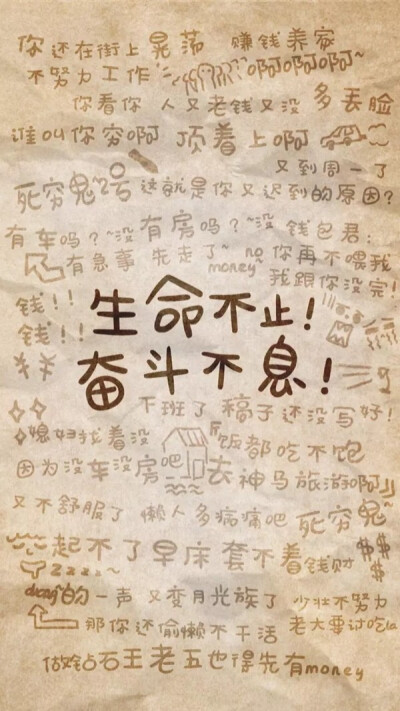 你还在街上晃荡 赚钱养家
不努力工作 啊啊啊啊~
你看你 人又老钱又没 多丢脸
谁叫你穷啊 顶着上啊
又到周一了
死穷鬼2号 这就是你又迟到的原因?
有车吗?~没 有房吗?~没 钱包君:
有急事 先走了~ no money 你再不喂我
我跟你没完!
钱!!
钱!!
生命不止!
奋斗不息!
下班了 稿子还没写好!
媳妇找着没 饭都吃不饱
因为没车没房吧 去神马旅游啊
又不舒服了 懒人多病痛吧 死穷鬼~
起不了早床 套不着钱财 $$$$
zzzz~
duang的一声 又变月光族了 少壮不努力
那你还偷懒不干活 老大要讨吃la
做钻石王老五也得先有money